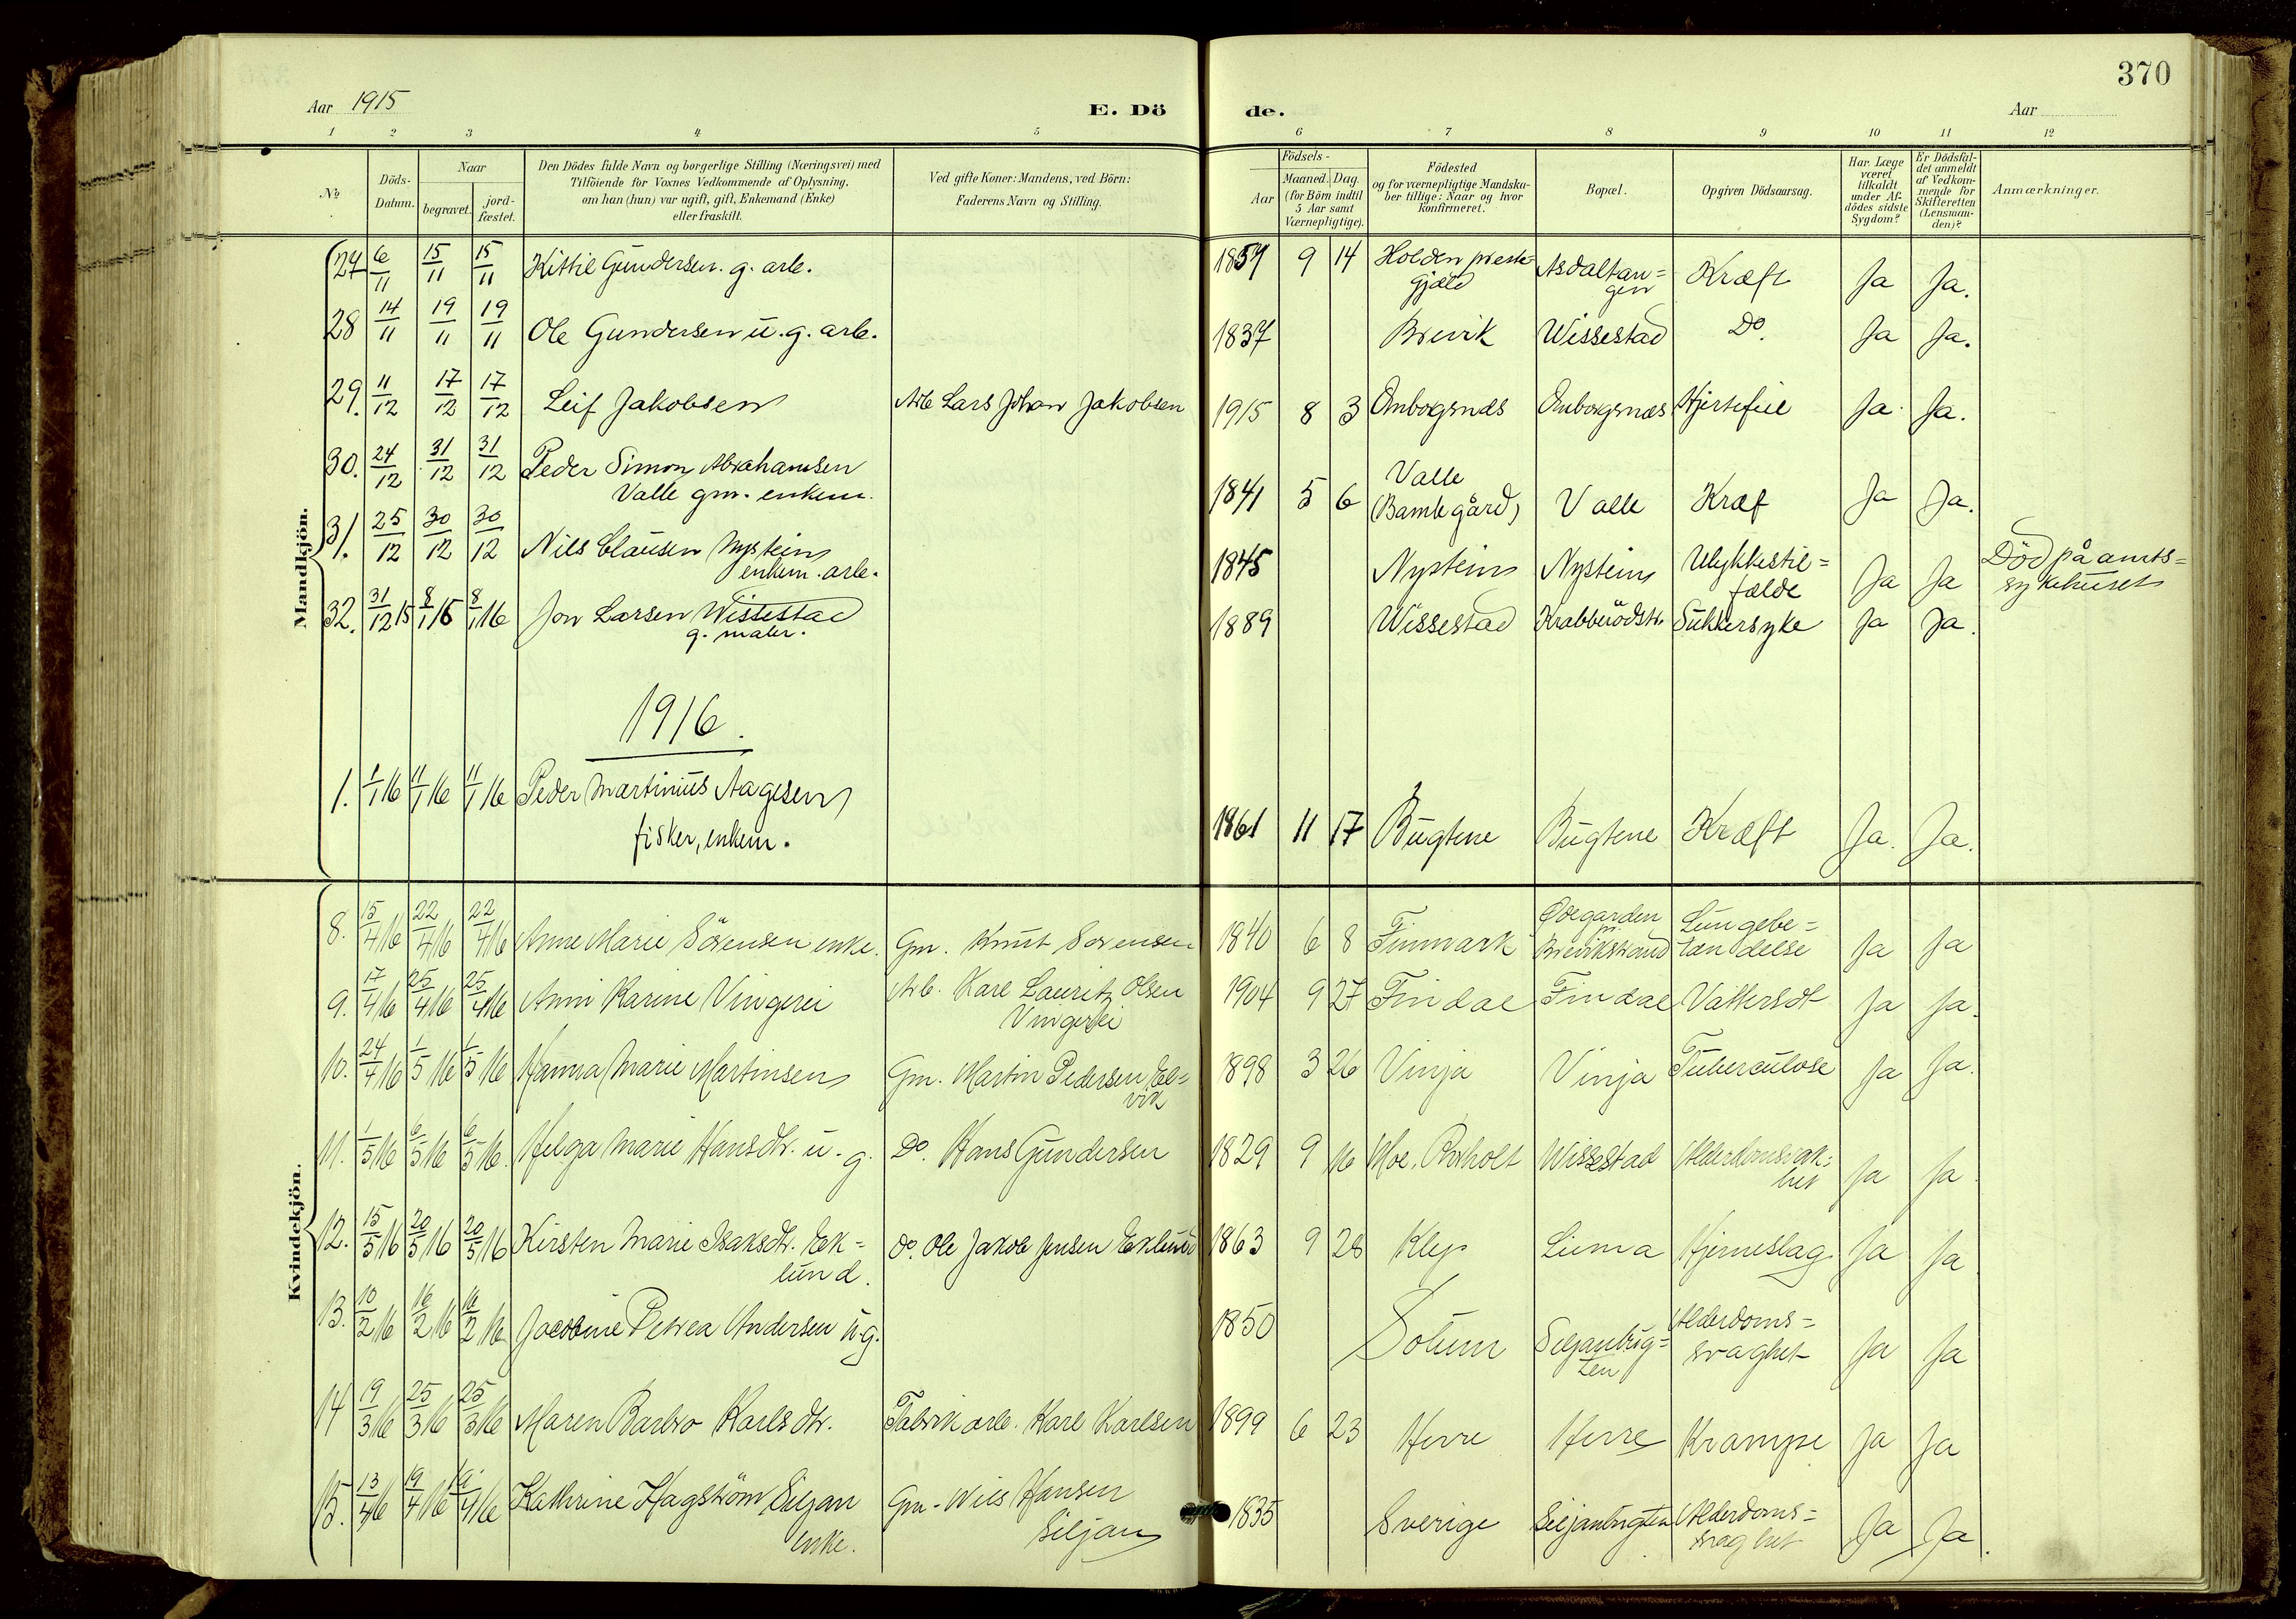 370
Aar 1915
E. Dö
de.
Aar
1 2 3 4 5 6 7 8 9 10 11 12
No
Döds-
Datum.
Naar
begravet.
jord-
fæstet.
Den Dödes fulde Navn og borgerlige Stilling (Næringsvei) med
Tilföiende for Voxnes Vedkommende af Oplysning,
om han (hun) var ugift, gift, Enkemand (Enke)
eller fraskilt.
Ved gifte Koner: Mandens, ved Börn:
Faderens Navn og Stilling.
Födsels-
Aar
Maaned. Dag.
(for Börn indtil
5 Aar samt
Værnepligtige).
Födested
og for værnepligtige Mandska-
ber tillige: Naar og hvor
konfirmeret.
Bopæl.
Opgiven Dödsaarsag.
Har Læge
været
tilkaldt
under Af-
dödes sidste
Sygdom?
Er Dödsfal-
det anmeldt
af Vedkom-
mende for
Skifteretten
(Lensman-
den)?
Anmærkninger.
Mandkjön.
27 6/11 15/11 15/11 Kittil Gundersen. g. arb. 1857 9 14 Holden preste= Asdaltan= Kræft Ja Ja.
gjæld gen
28 14/11 19/11 19/11 Ole Gundersen u. g. arb. 1837 Brevik Wissestad Do. Ja Ja.
29. 11/12 17/12 17/12 Leif Jakobsen Arb Lars Johan Jakobsen 1915 8 3 Ombogsnæs Omborgsnæs Hjertefeil Ja Ja.
30. 24/12 31/12 31/12 Peder Simon Abrahamsen
Valle gm. enkem. 1841 5 6 Valle
(Bamble gård) Valle Kræf Ja Ja.
31. 25/12 30/12 30/12 Nils Clausen Nystein
enkem. arb. 1845 Nystein Nystein Ulykkestil= Ja Ja Död på amts=
fælde sykehuset
32. 31/12 15 8/1 16 8/1 16 Jon Larsen Wissestad
g. maler. 1889 Wissestad Krabberödstr. Sukkersyke Ja Ja.
1916.
1. 1/1 16 11/1 16 11/1 16 Peder Martinius Aagesen
fisker, enkem. 1861 11 17 Bugtene Bugtene Kræft Ja. Ja.
Kvindekjön.
8. 15/4 16 22/4 16 22/4 16 Anne Marie Sörensen enke. Gm. Knut Sorensen 1840 6 8 Finmark Ødegarden Lungebe= Ja Ja
pr. Brevikstrand tændelse
9. 17/4 16 25/4 16 25/4 16 Anni Karine Vingerei Arb. Karl Lauritz Olsen
Vingerei 1904 9 27 Findal Findal Vattersot Ja Ja.
10. 24/4 16 1/5 16 1/5 16 Hanna Marie Martinsen Gm. Martin Pedersen Ek=
vik 1898 3 26 Vinja Vinja Tuberculose Ja Ja.
11. 1/5 16 6/5 16 6/5 16. Helga Marie Hansdtr. u. g. Do. Hans Gundersen 1829 9 16 Hoe, Wissestad Alderdomsvak=
het Ja Ja
12. 15/5 16 20/5 16 20/5 16 Kirsten Marie Isaksdtr. Ek=
lund. Do. Ole Jakob Jensen Eklund 1863 9 28 Klep Liema Hjerneslag Ja Ja
13. 10/2 16 16/2 16 16/2 16 Jacobine Petrea Andersen u.g. 1850 Solum Siljanbug=
ten Alderdoms=
svaghet Ja Ja
14 19/3 16 25/3 16 25/3 16 Maren Barbro Karlsdtr. Fabrikarb. Karl Karlsen 1899 6 23 Herre Herre Krampe Ja Ja
15. 13/4 16 19/4 16 19/4 16 Kathrine Hagström Siljan
enke. Gm. Nils Hansen
Siljan 1835 Sverige Siljanbugten Alderdoms=
svaghet Ja Ja.